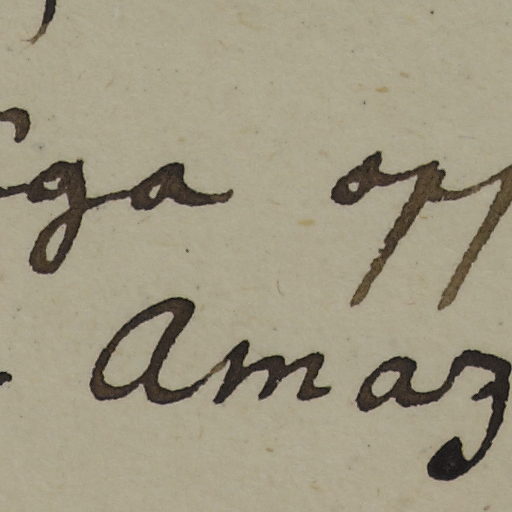 ga opp
Amaz